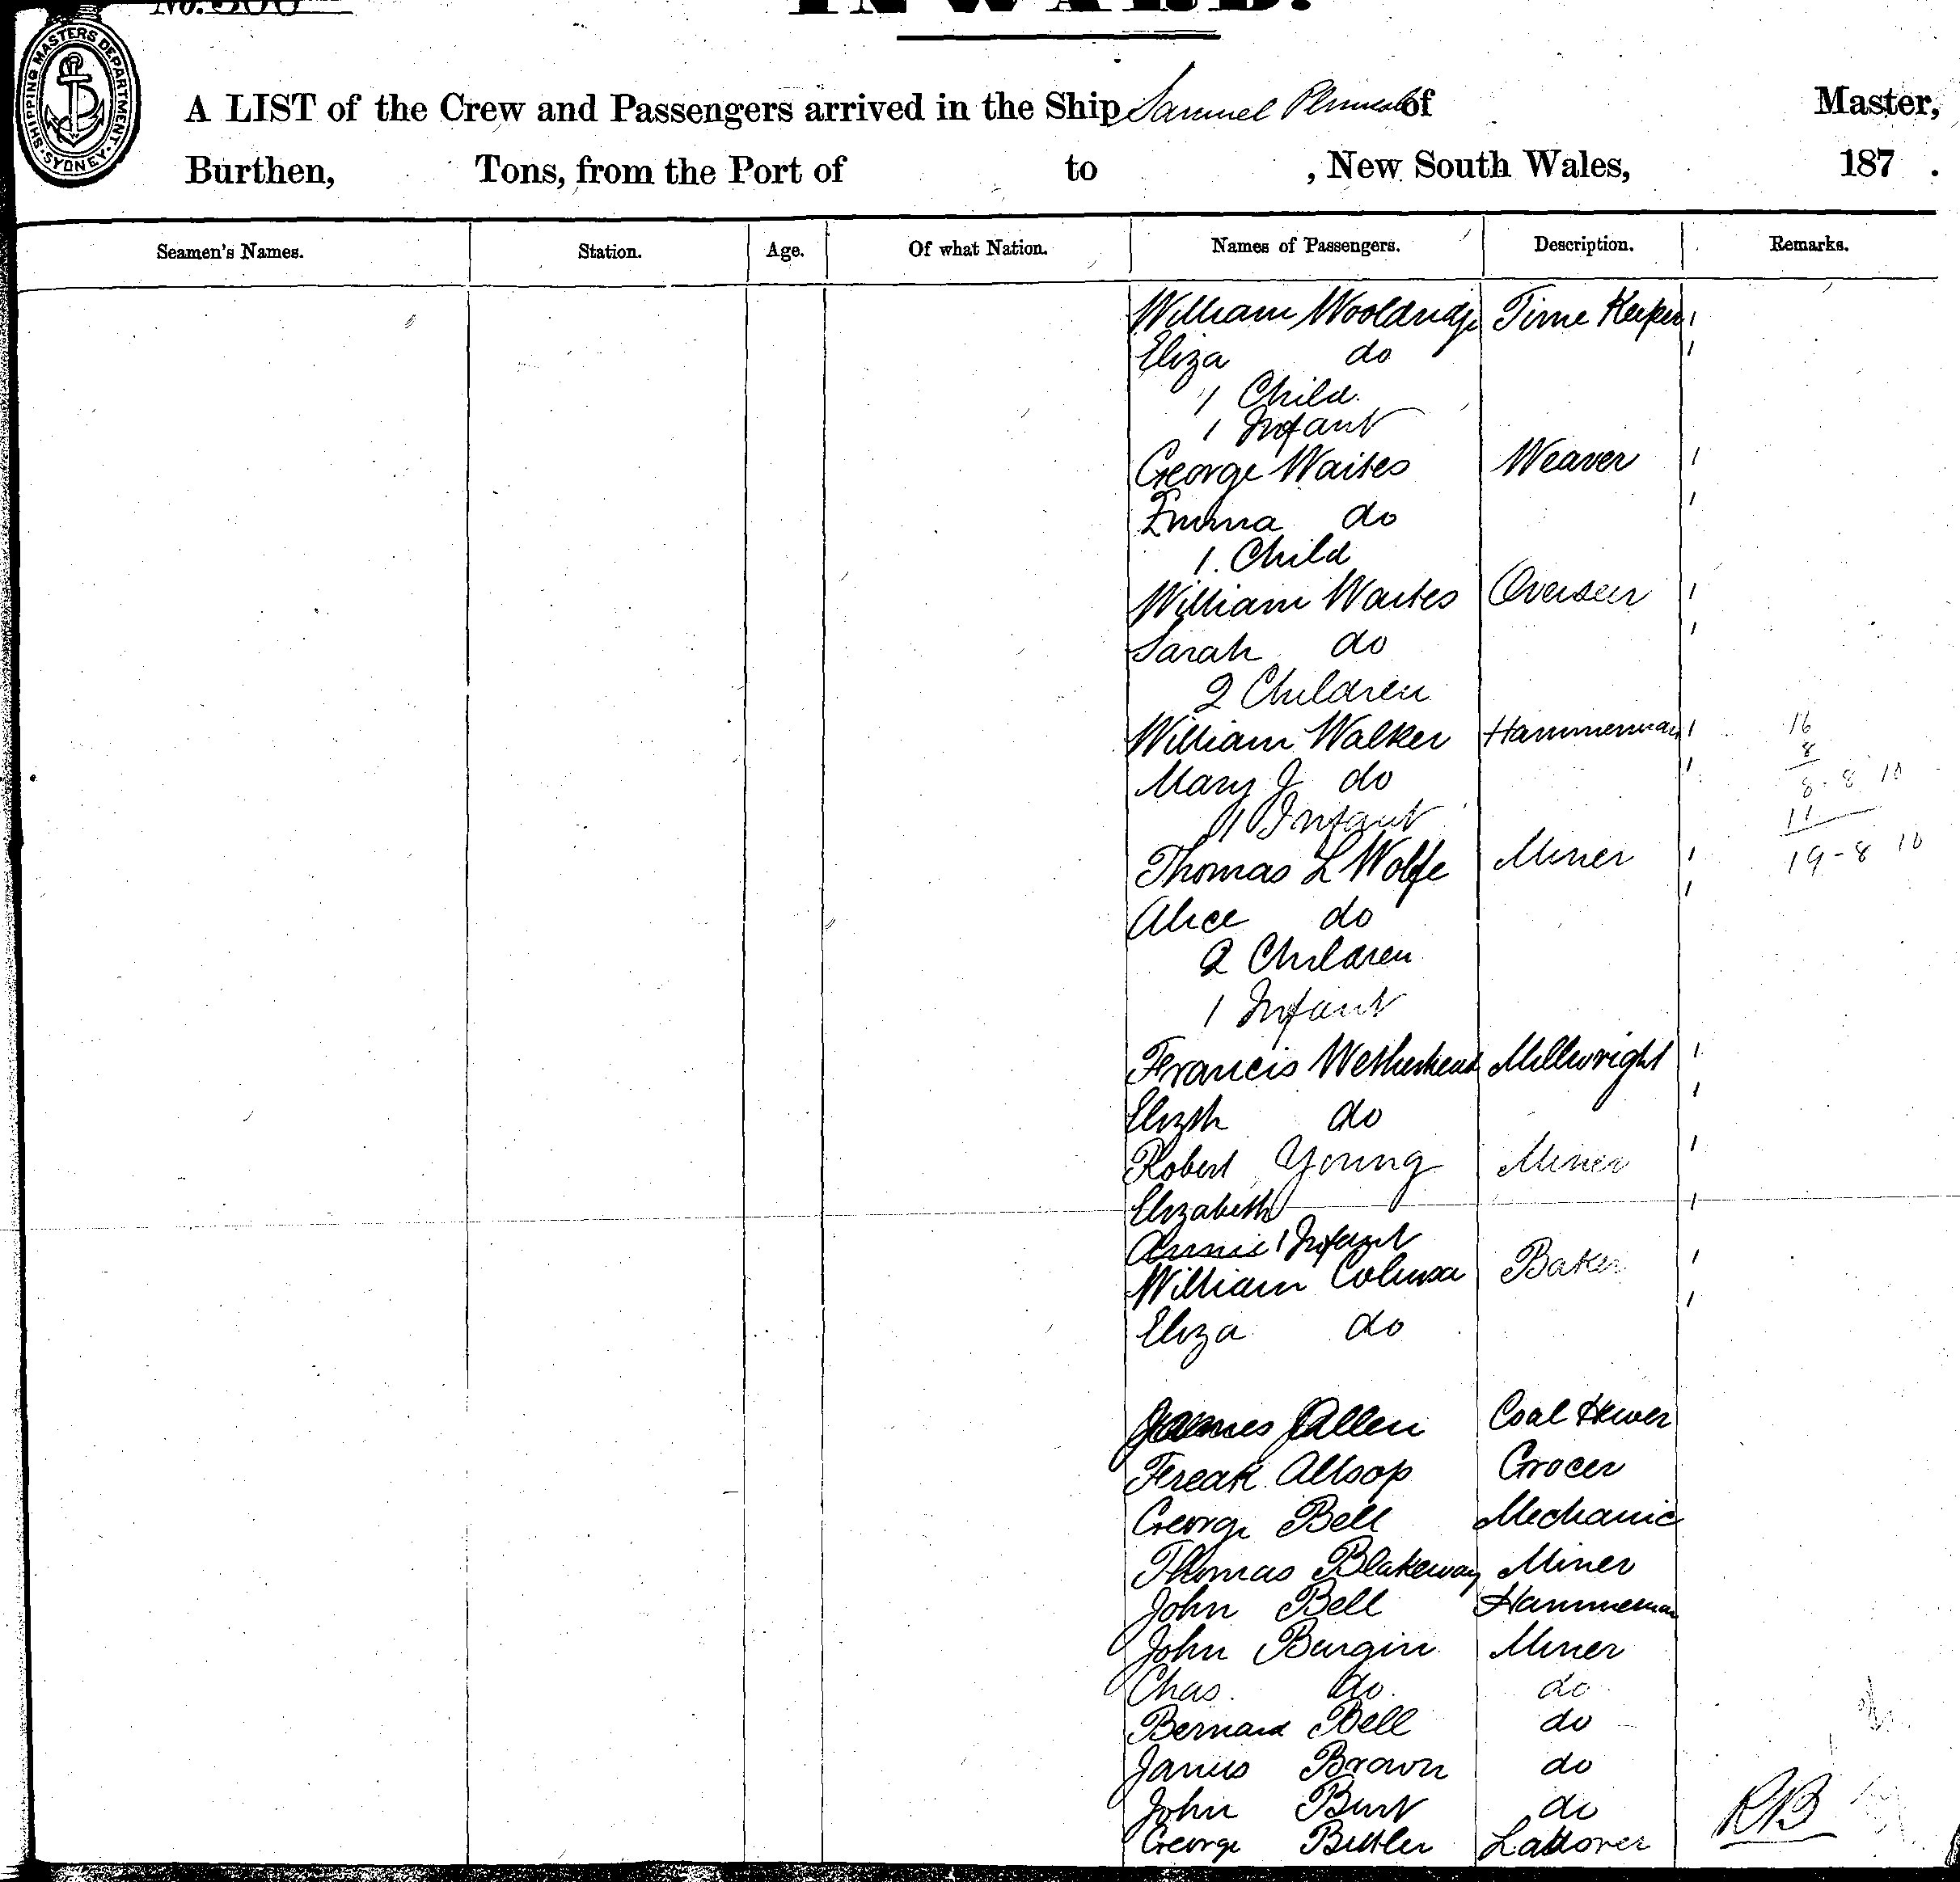 No. 500
INWARD.
SHIPPING MASTERS DEPARTMENT · SYDNEY ·
A LIST of the Crew and Passengers arrived in the Ship Samuel of Master,
Burthen, Tons, from the Port of to , New South Wales, 187 .
Seamen's Names. Station. Age. Of what Nation. Names of Passengers. Description. Remarks.
William Wooldridge Time Keeper 1
Eliza do 1
1 Child
1 Infant
George Waites Weaver 1
Emma do 1
1 Child
William Waites Overseer 1
Sarah do 1
2 Children
William Walker Hammerman 1 16
Mary J do 1 8
8 - 8 10
1 Infant 11
Thomas L Wolfe Miner 1 19 - 8 10
Alice do 1
2 Children
1 Infant
Francis Wetherhead Millwright 1
Elizth do 1
Robert Young Miner 1
Elizabeth 1
Annie 1 Infant
William Baker 1
Eliza do 1
James Allen Coal Hewer
Fredk Allsop Grocer
George Bell Mechanic
Thomas Blakeway Miner
John Bell Hammerman
John Burgin Miner
Chas. do do
Bernard Bell do
James Brown do
John Burt do
George Butler
RB